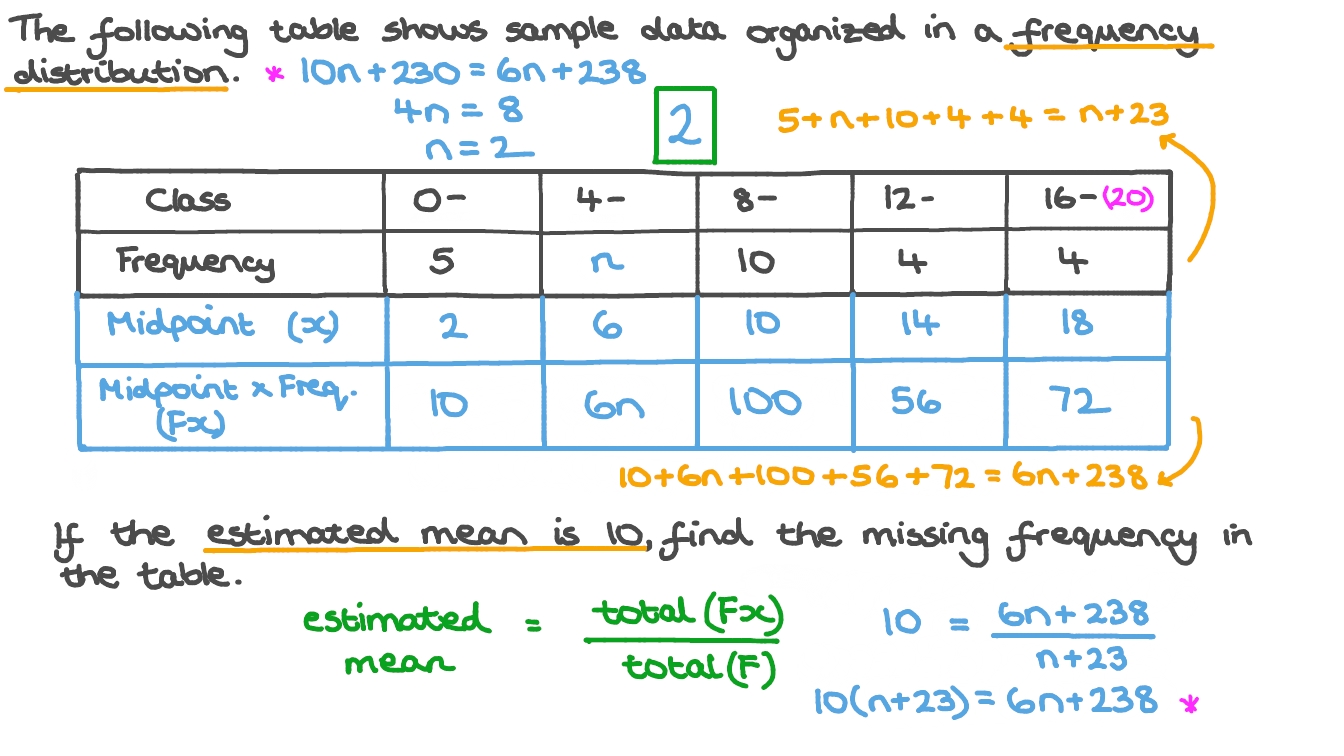 The following table shows sample data organized in a frequency
distribution. * 10n+230 = 6n+238
4n = 8
n = 2
2
5+n+10+4+4 = n+23
Class 0- 4- 8- 12- 16-(20)
Frequency 5 n 10 4 4
Midpoint (x) 2 6 10 14 18
Midpoint x Freq. (Fx) 10 6n 100 56 72
10+6n+100+56+72 = 6n+238
If the estimated mean is 10, find the missing frequency in
the table.
estimated mean = total (Fx) / total (F)
10 = 6n+238 / n+23
10(n+23) = 6n+238 *